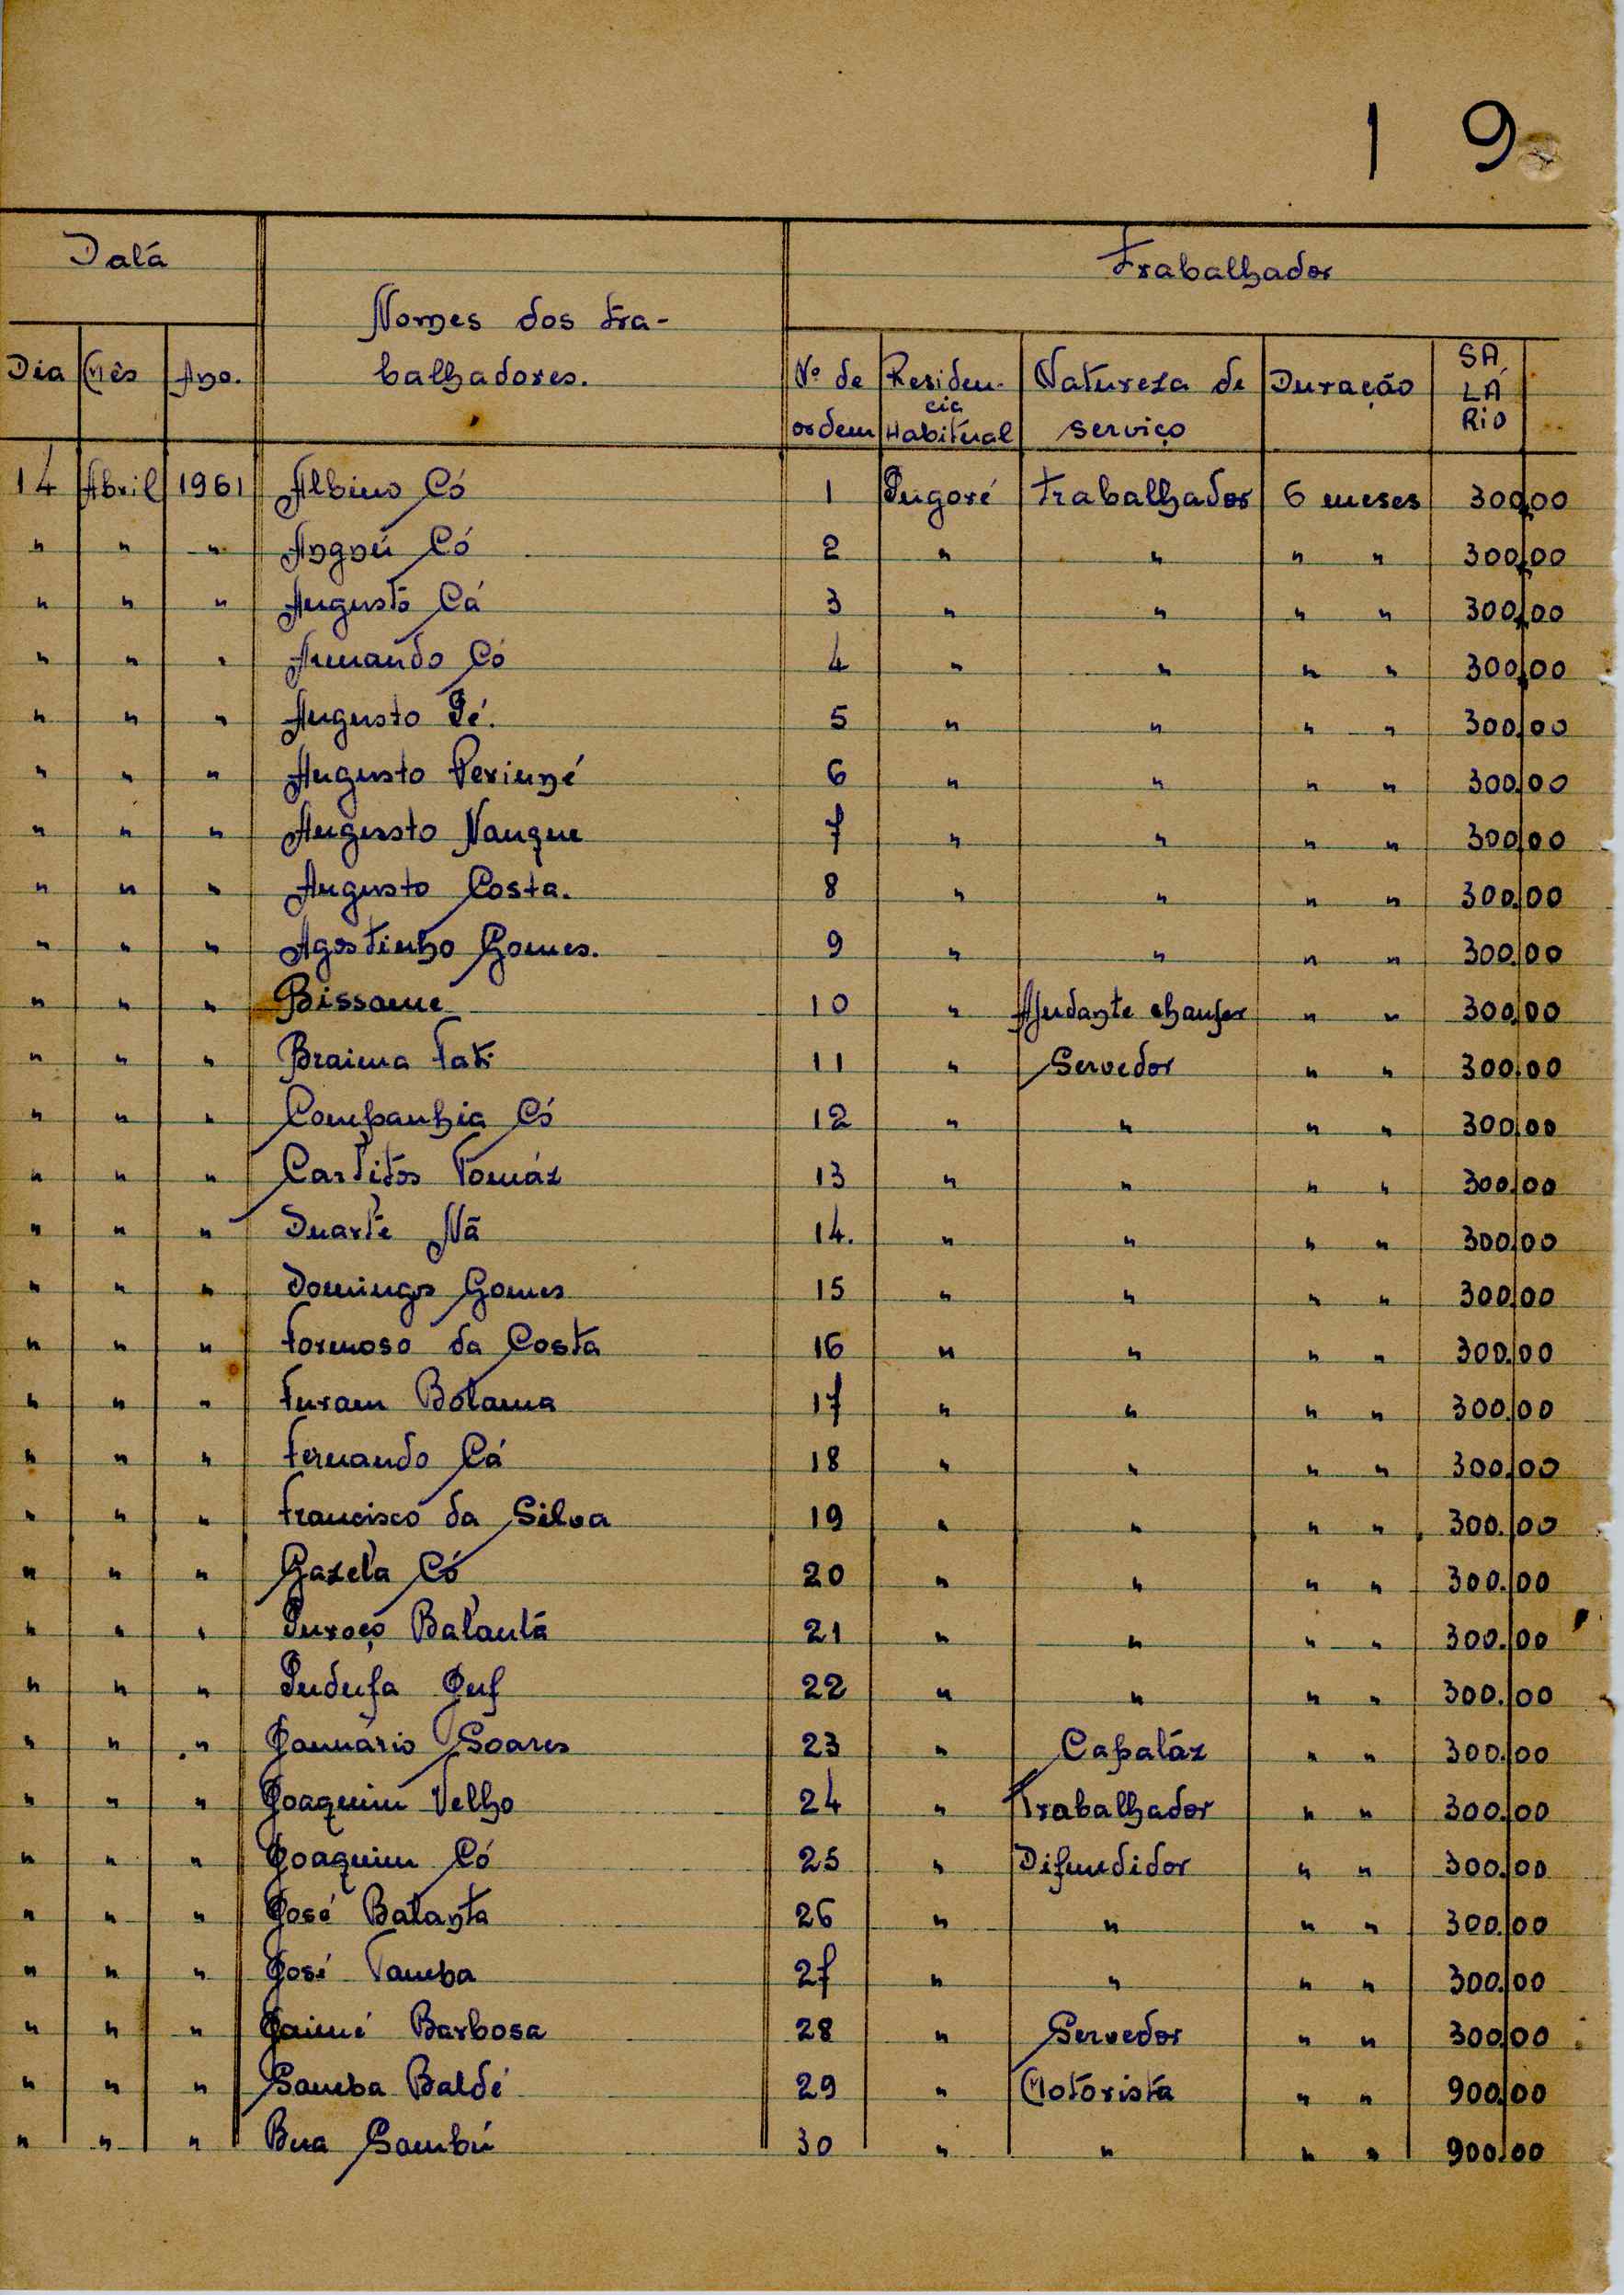 1 9
Datá
Trabalhador
Nomes dos tra-
balhadores.
Dia Mês Ano.
Nº de ordem
Residencia Habitúal
Natureza de serviço
Duração
SALÁRIO
14 Abril 1961 Albino Có 1 Pugoré Trabalhador 6 meses 300,00
" " " Angnú Có 2 " " " " 300,00
" " " Augusto Cá 3 " " " " 300,00
" " " Armando Có 4 " " " " 300,00
" " " Augusto Pé. 5 " " " " 300,00
" " " Augusto 6 " " " " 300,00
" " " Augusto Nanque 7 " " " " 300,00
" " " Augusto Costa. 8 " " " " 300,00
" " " Agostinho Gomes. 9 " " " " 300,00
" " " Bissome 10 " Ajudante chaufer " " 300,00
" " " Braima Fati 11 " Servedor " " 300,00
" " " Companhia Có 12 " " " " 300,00
" " " Carlitos Tomáz 13 " " " " 300,00
" " " Duarte Nã 14. " " " " 300,00
" " " Domingos Gomes 15 " " " " 300,00
" " " Formoso da Costa 16 " " " " 300,00
" " " Furam Bolama 17 " " " " 300,00
" " " Fernando Cá 18 " " " " 300,00
" " " Francisco da Silva 19 " " " " 300,00
" " " Gazela Có 20 " " " " 300,00
" " " Balantá 21 " " " " 300,00
" " " 22 " " " " 300,00
" " " Januário Soares 23 " Capatáz " " 300,00
" " " Joaquim Velho 24 " Trabalhador " " 300,00
" " " Joaquim Có 25 " Difundidor " " 300,00
" " " José Balanta 26 " " " " 300,00
" " " José Tamba 27 " " " " 300,00
" " " Jaimé Barbosa 28 " Servedor " " 300,00
" " " Samba Baldé 29 " Motorista " " 900,00
" " " Bua Sambú 30 " " " " 900,00